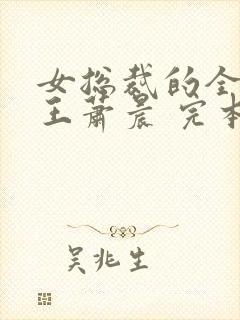 女总裁的全
王萧晨 完本
吴兆生